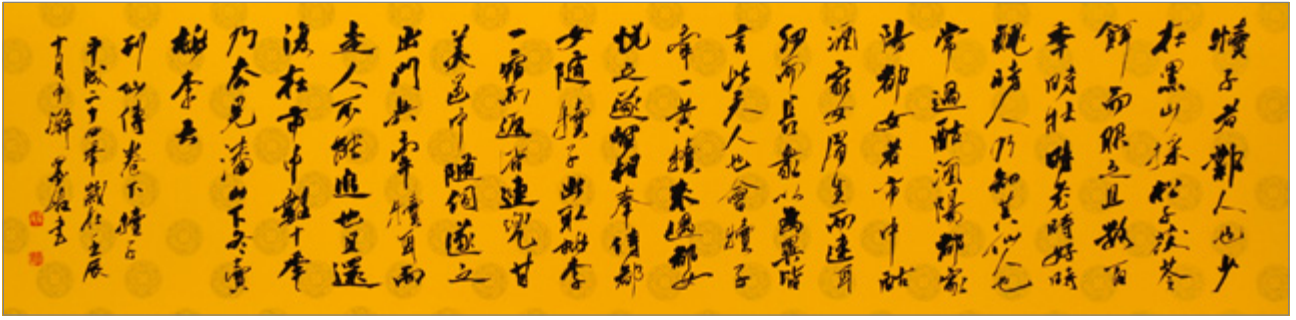 犢子者鄴人也少
在黒山採松子茯苓
餌而服之且数百
年時壮時老時好時
醜時人乃知其仙人也
常過酤酒陽都家
陽都女者市中酤
酒家女眉生而連耳
細而長衆以為異皆
言此天人也會犢子
牽一黄犢来過都女
悦之遂留相奉侍都
女随犢子出取桃李
一宿而返皆連兜甘
美邑中随伺逐之
出門共牽犢耳而
走人不能追也且還
復在市中数十年
乃去見潘山下冬賣
桃李云
列仙傳巻下犢子
平成二十四年歳在壬辰
十月中澣 書